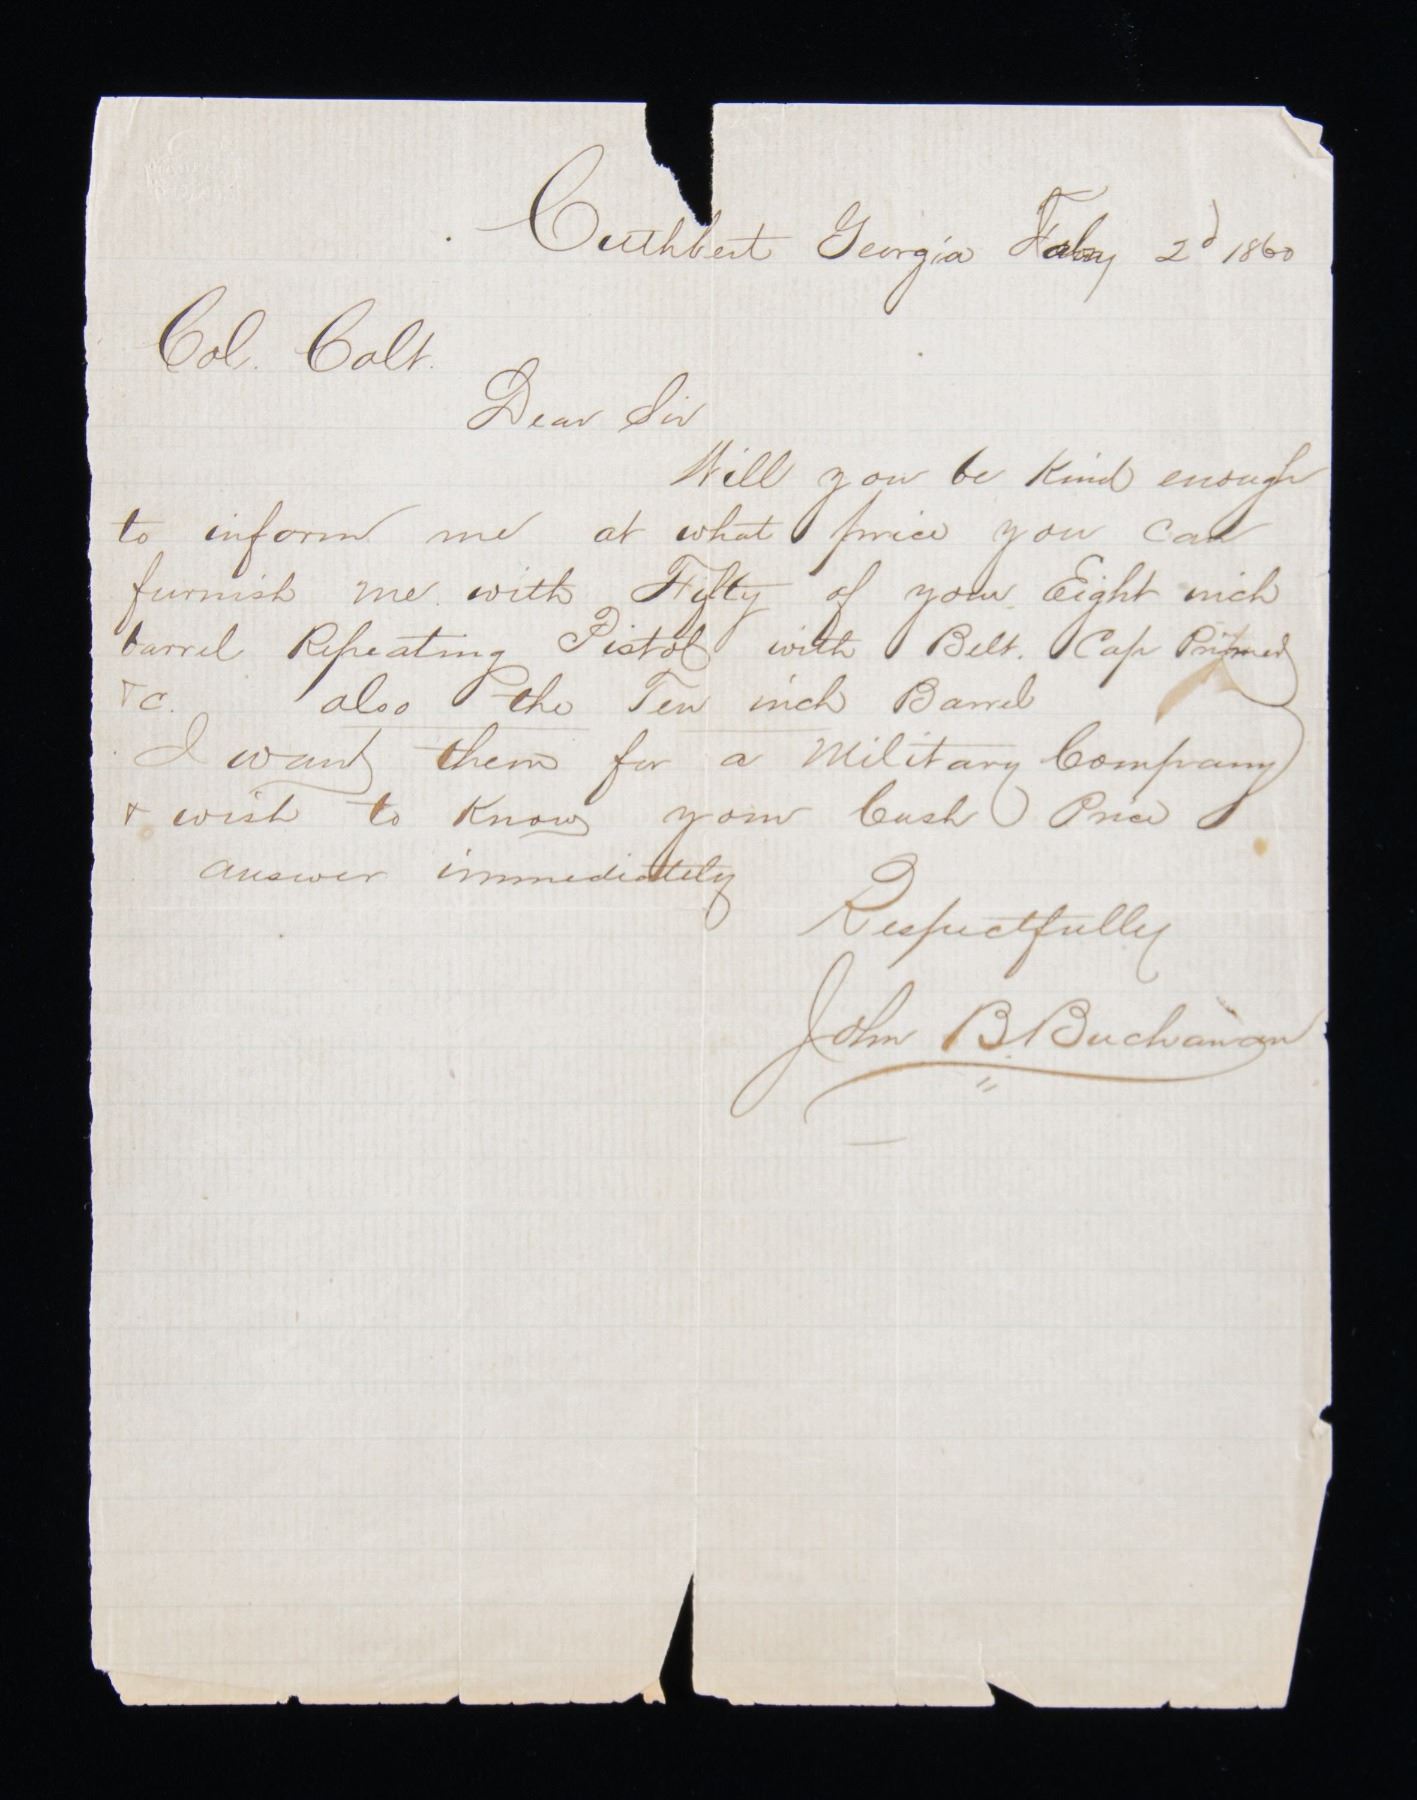 Cuthbert Georgia Feby 2d 1860
Col. Colt.
Dear Sir
Will you be Kind enough
to inform me at what price you can
furnish me with Fifty of your Eight inch
barrel Repeating Pistol with Belt. Cap Primer
&c. also the Ten inch Barrel
I want them for a Military Company
& wish to Know your Cash Price
answer immediately
Respectfully
John B. Buchanan